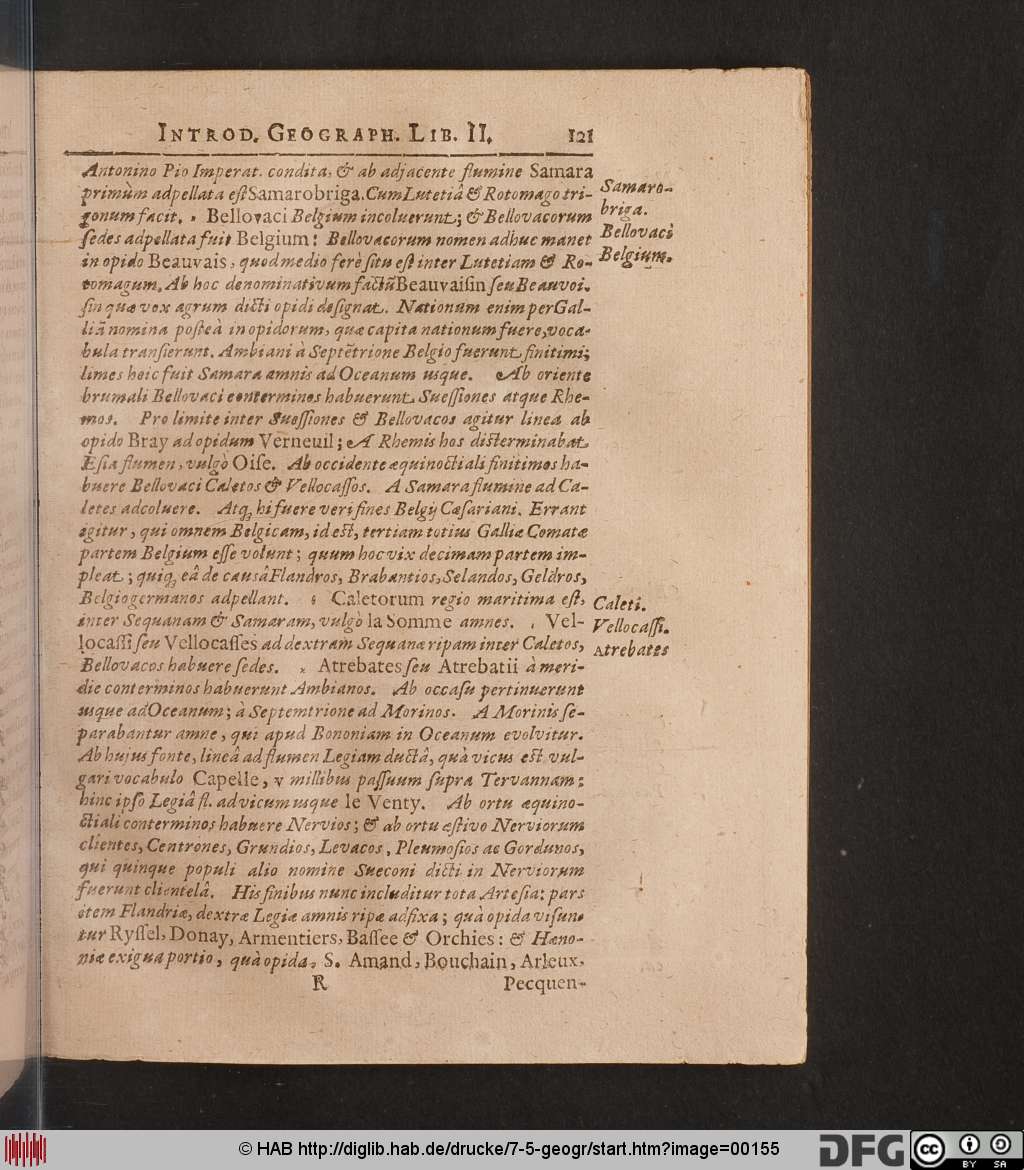 INTROD. GEOGRAPH. LIB. II. 121
Antonino Pio Imperat. condita, & ab adjacente flumine Samara
primùm adpellata eſt Samarobriga. Cum Lutetiâ & Rotomago tri-
gonum facit. Bellovaci Belgium incoluerunt; & Bellovacorum
ſedes adpellata fuit Belgium: Bellovacorum nomen adhuc manet
in opido Beauvais, quod medio ferè ſitu eſt inter Lutetiam & Ro-
tomagum. Ab hoc denominativum factũ Beauvaiſin ſeu Beauvoi-
ſin quæ vox agrum dicti opidi deſignat. Nationum enim per Gal-
liã nomina poſteà in opidorum, quæ capita nationum fuere, voca-
bula tranſierunt. Ambiani à Septẽtrione Belgio fuerunt finitimi;
limes heic fuit Samara amnis ad Oceanum usque. Ab oriente
brumali Bellovaci conterminos habuerunt Sueſſiones atque Rhe-
mos. Pro limite inter Sueſſiones & Bellovacos agitur linea ab
opido Bray ad opidum Verneuil; A Rhemis hos disterminabat
Eſia flumen, vulgò Oiſe. Ab occidente æquinoctiali finitimos ha-
buere Bellovaci Caletos & Vellocaſſos. A Samara flumine ad Ca-
letes adcoluere. Atq; hi fuere veri fines Belgij Cæſariani. Errant
igitur, qui omnem Belgicam, id eſt, tertiam totius Galliæ Comatæ
partem Belgium eſſe volunt; quum hoc vix decimam partem im-
pleat; quiq; eâ de causâ Flandros, Brabantios, Selandos, Geldros,
Belgiogermanos adpellant. Caletorum regio maritima eſt,
inter Sequanam & Samaram, vulgò la Somme amnes. Vel-
locaſſi ſeu Vellocaſſes ad dextram Sequanæ ripam inter Caletos,
Bellovacos habuere ſedes. Atrebates ſeu Atrebatii à meri-
die conterminos habuerunt Ambianos. Ab occaſu pertinuerunt
usque ad Oceanum; à Septemtrione ad Morinos. A Morinis ſe-
parabantur amne, qui apud Bononiam in Oceanum evolvitur.
Ab hujus fonte, lineâ ad flumen Legiam ductâ, quà vicus eſt vul-
gari vocabulo Capelle, v millibus paſſuum ſupra Tervannam:
hinc ipſo Legiâ fl. ad vicum usque le Venty. Ab ortu æquino-
ctiali conterminos habuere Nervios; & ab ortu æſtivo Nerviorum
clientes, Centrones, Grundios, Levacos, Pleumoſios ac Gordunos,
qui quinque populi alio nomine Sueconi dicti in Nerviorum
fuerunt clientelâ. His finibus nunc includitur tota Arteſia: pars
item Flandriæ, dextræ Legiæ amnis ripæ adfixa; quà opida viſun-
tur Ryſſel, Donay, Armentiers, Baſſee & Orchies: & Hæno-
niæ exigua portio, quà opida, S. Amand, Bouchain, Arleux,
R Pecquen-
Samaro-
briga.
Bellovaci
Belgium.
Caleti.
Vellocaſſi.
Atrebates
© HAB http://diglib.hab.de/drucke/7-5-geogr/start.htm?image=00155
DFG
cc
BY SA